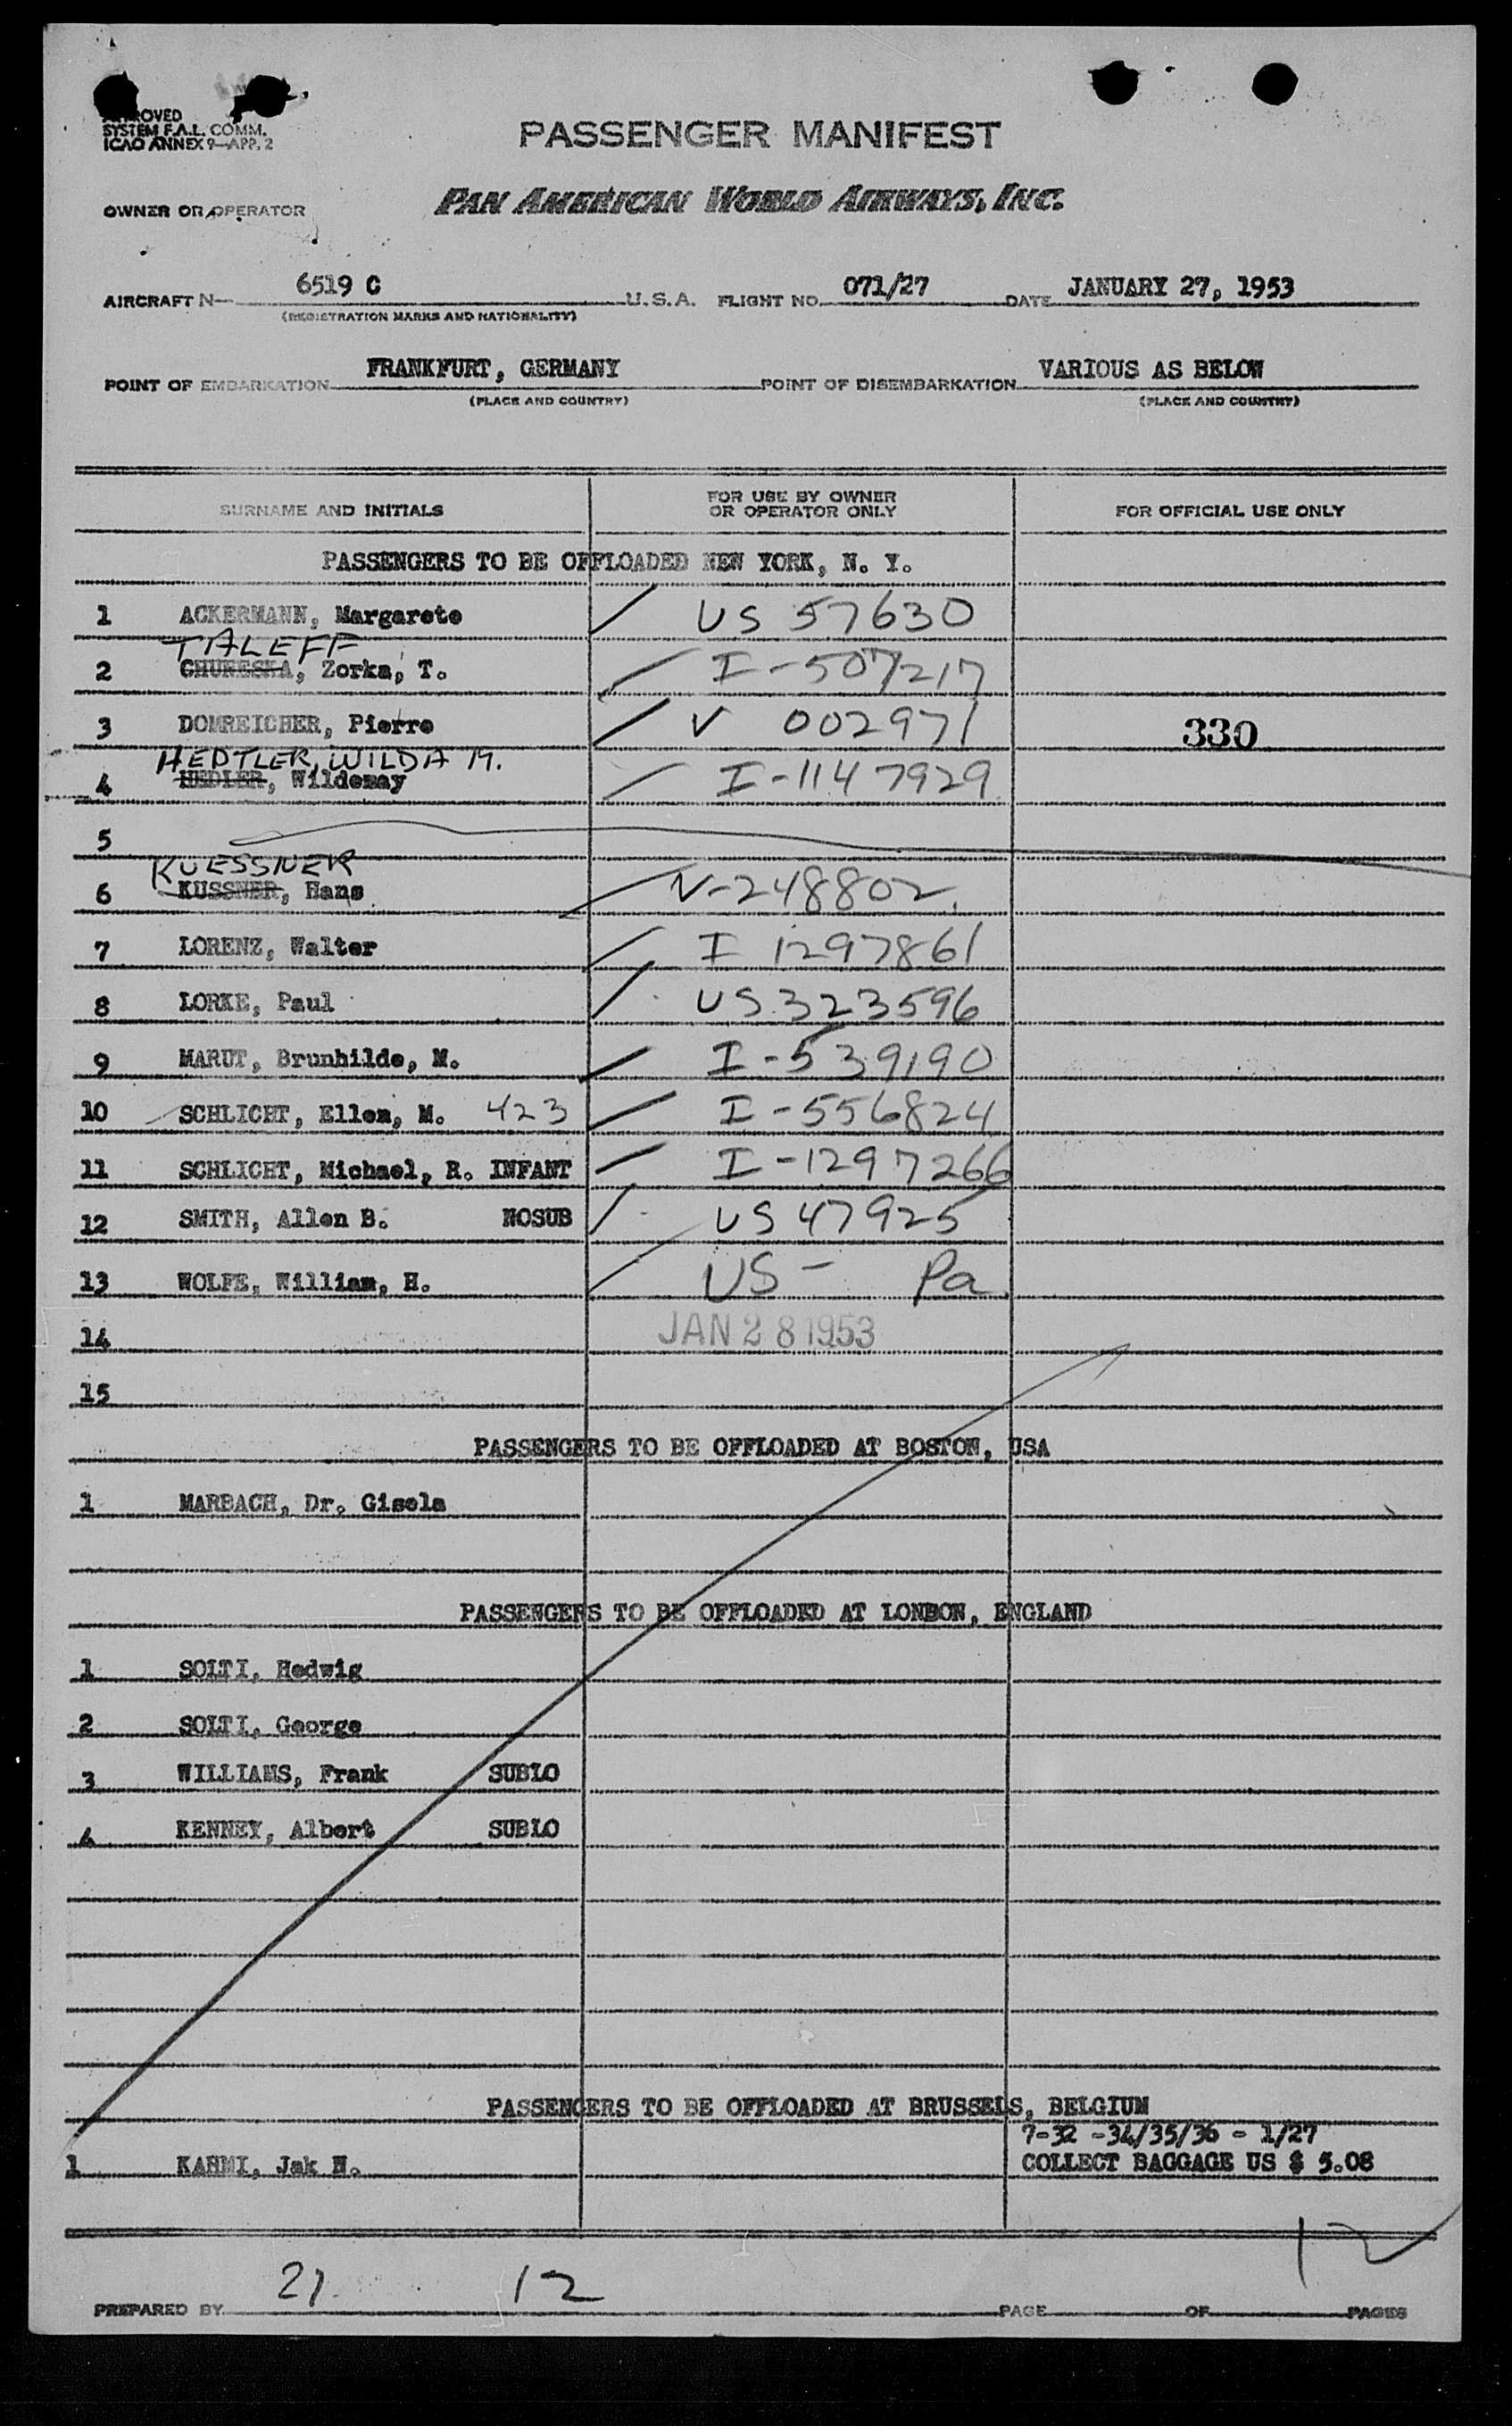 ROVED
SYSTEM F.A.L. COMM.
ICAO ANNEX 9-APP. 2
PASSENGER MANIFEST
OWNER OR OPERATOR PAN AMERICAN WORLD AIRWAYS, INC.
AIRCRAFT N- 6519 C U.S.A. FLIGHT NO. 071/27 DATE JANUARY 27, 1953
(REGISTRATION MARKS AND NATIONALITY)
POINT OF EMBARKATION FRANKFURT, GERMANY POINT OF DISEMBARKATION VARIOUS AS BELOW
(PLACE AND COUNTRY) (PLACE AND COUNTRY)
SURNAME AND INITIALS FOR USE BY OWNER OR OPERATOR ONLY FOR OFFICIAL USE ONLY
PASSENGERS TO BE OFFLOADED NEW YORK, N. Y.
1 ACKERMANN, Margarete / US 57630
TALEFF
2 Zorka, T. / I-507217
3 DOMREICHER, Pierre / V 002971 330
HEDTLER, WILDA M.
4 HEDLER, Wildemay / I-1147929
5
KUESSNER
6 KUSSNER, Hans / V-248802
7 LORENZ, Walter / I 1297861
8 LORKE, Paul / US 323596
9 MARUT, Brunhilde, M. / I-539190
10 SCHLICHT, Ellen, M. 423 / I-556824
11 SCHLICHT, Michael, R. INFANT / I-1297266
12 SMITH, Allen B. NOSUB / US 47925
13 WOLFE, William, H. / US - Pa
14 JAN 28 1953
15
PASSENGERS TO BE OFFLOADED AT BOSTON, USA
1 MARBACH, Dr. Gisela
PASSENGERS TO BE OFFLOADED AT LONDON, ENGLAND
1 SOLTI, Hedwig
2 SOLTI, George
3 WILLIAMS, Frank SUBLO
4 KENNEY, Albert SUBLO
PASSENGERS TO BE OFFLOADED AT BRUSSELS, BELGIUM
7-32 -34/35/36 - 1/27
1 KAHMI, Jak N. COLLECT BAGGAGE US $ 5.08
12
21 12
PREPARED BY PAGE OF PAGES